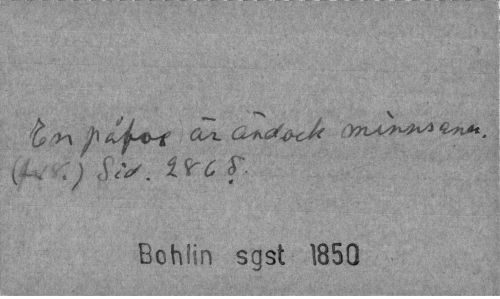 En påfoe är ändock minnsann.
(fr8.) Sid. 2868.
Bohlin sgst 1850